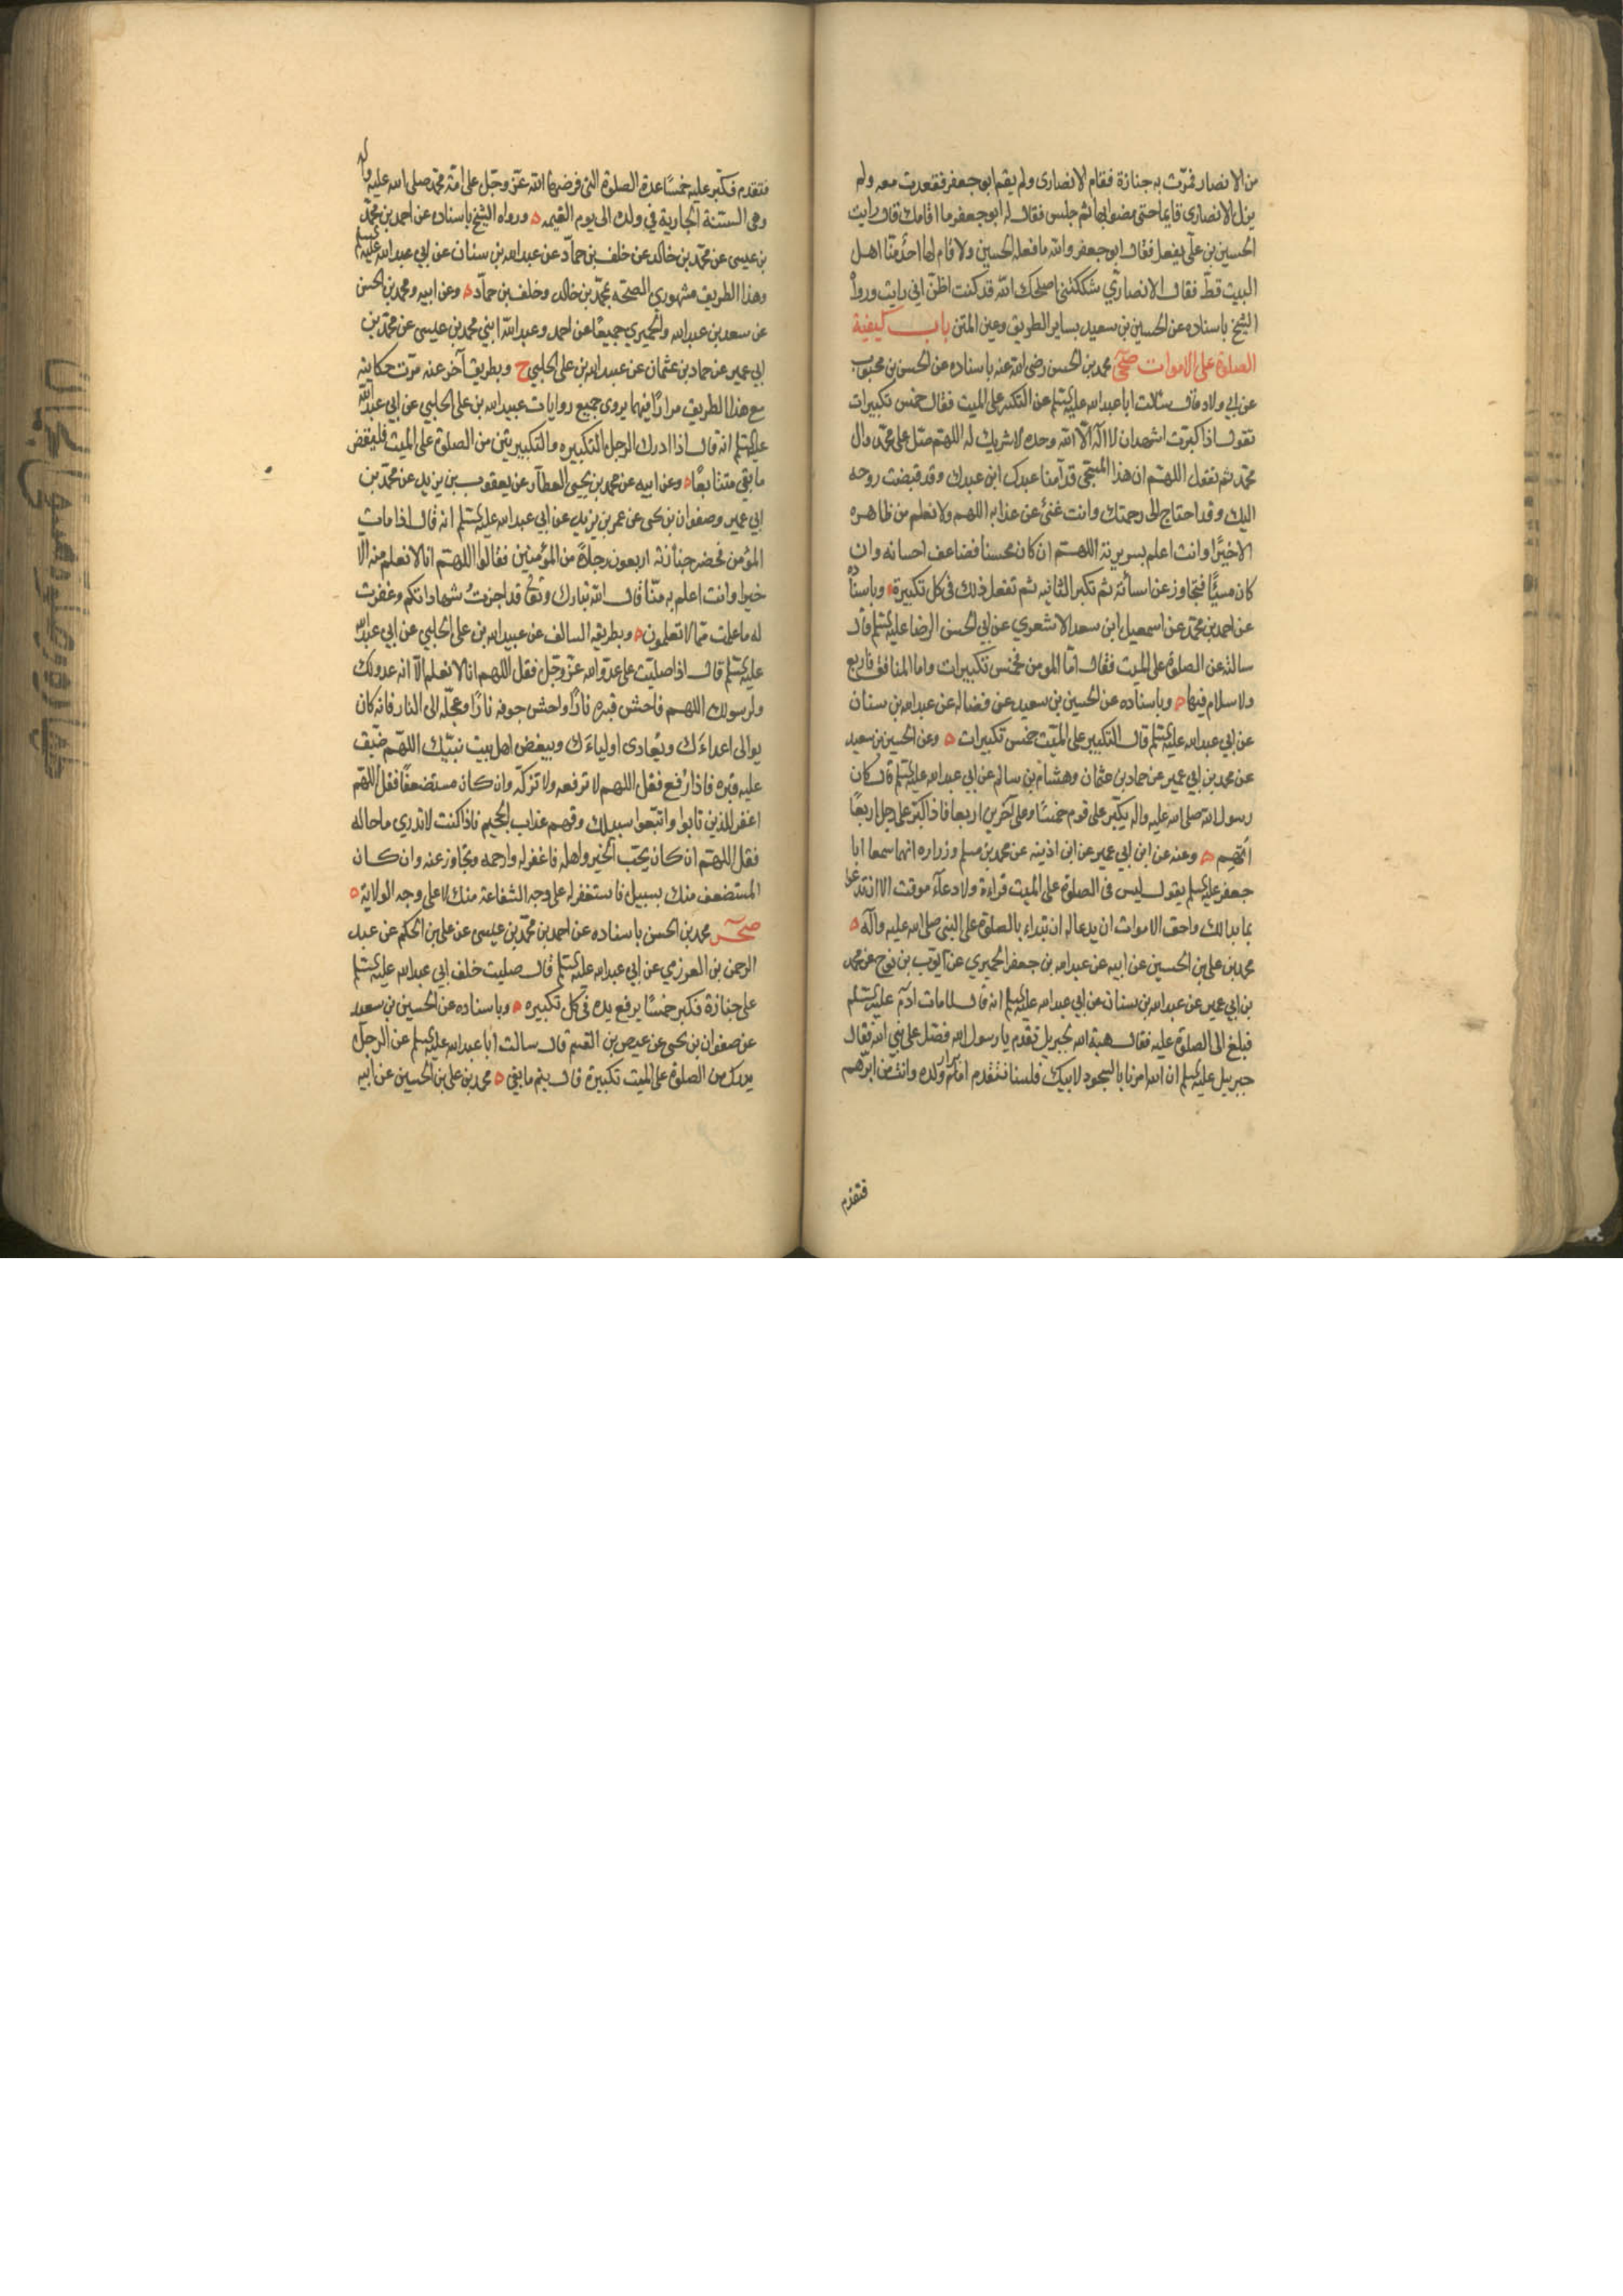 من الانصار فمرت به جنازة فقام الانصارى ولم يقم ابو جعفر فقعدت معه ولم
يزل الانصارى قايما حتى مضوا بها ثم جلس فقال له ابو جعفر ما اقامك قال رايت
الحسين بن علي يفعل فقال ابو جعفر والله ما فعله الحسين ولا قام لها احد منا اهل
البيت قط فقال الانصاري شككتني اصلحك الله قد كنت اظن اني رايت وروا
الشيخ باسناده عن الحسين بن سعيد بساير الطريق وعين المتن باب كيفية
الصلوة على الاموات صحي محمد بن الحسن رضى الله عنه باسناده عن الحسن بن محبوب
عن ابي ولاد قال سالت ابا عبدالله عليه السلم عن التكبير على الميت فقال خمس تكبيرات
تقول اذا كبرت اشهد ان لا اله الا الله وحده لا شريك له اللهم صل على محمد وال
محمد ثم تقول اللهم ان هذا المسجى قدامنا عبدك ابن عبدك وقد قبضت روحه
اليك وقد احتاج الى رحمتك وانت غني عن عذابه اللهم ولا نعلم من ظاهره
الا خيرا وانت اعلم بسريرته اللهم ان كان محسنا فضاعف احسانه وان
كان مسيئا فتجاوز عن اسائته ثم تكبر الثانيه ثم تفعل ذلك في كل تكبيرة وباسناده
عن احمد بن محمد عن اسمعيل ابن سعد الاشعري عن ابي الحسن الرضا عليه السلم قال
سالته عن الصلوة على الميت فقال اما المومن فخمس تكبيرات واما المنافق فاربع
ولا سلام فيها وباسناده عن الحسين بن سعيد عن فضاله عن عبدالله بن سنان
عن ابي عبدالله عليه السلم قال التكبير على الميت خمس تكبيرات وعن الحسين بن سعيد
عن محمد بن ابي عمير عن حماد بن عثمان وهشام بن سالم عن ابي عبدالله عليه السلم قال كان
رسول الله صلى الله عليه واله يكبر على قوم خمسا وعلى آخرين اربعا فاذا كبر على رجل اربعا
اتهم وعنه عن ابن ابي عمير عن ابن اذينه عن محمد بن مسلم وزراره انهما سمعا ابا
جعفر عليه السلم يقول ليس في الصلوة على الميت قراءة ولا دعآء موقت الا ان تدعو
بما بدا لك واحق الاموات ان يدعا له ان تبداء بالصلوة على النبي صلى الله عليه وآله
محمد بن علي بن الحسين عن ابيه عن عبدالله بن جعفر الحميري عن ايوب بن نوح عن محمد
بن ابي عمير عن عبدالله بن سنان عن ابي عبدالله عليه السلم انه قال لما مات ادم عليه السلم
فبلغ الى الصلوة عليه فقال هبة الله لجبريل تقدم يا رسول الله فصل على نبي الله فقال
جبريل عليه السلم ان الله امرنا بالسجود لابيك فلسنا نتقدم ابرار ولده وانت من ابرهم
فتقدم
فتقدم فكبر عليه خمسا عدة الصلوة التي فرضها الله عز وجل على امة محمد صلى الله عليه واله
وهى السنة الجارية في ولده الى يوم القيمه ورواه الشيخ باسناده عن احمد بن محمد
بن عيسى عن محمد بن خالد عن خلف بن حماد عن عبدالله بن سنان عن ابي عبدالله عليه السلم
وهذا الطريق مشهوري الصحة بمحمد بن خالد وخلف بن حماد وعن ابيه ومحمد بن الحسن
عن سعد بن عبدالله والحميري جميعا عن احمد وعبدالله ابني محمد بن عيسى عن محمد بن
ابي عمير عن حماد بن عثمان عن عبيد الله بن على الحلبي ح وبطريق آخر عنه مرت حكايته
مع هذا الطريق مرارا فيهما يروى جميع روايات عبيدالله بن على الحلبي عن ابي عبدالله
عليه السلم انه قال اذا ادرك الرجل التكبيره والتكبيرتين من الصلوة على الميت فليقض
ما بقي متتابعا وعن ابيه عن محمد بن يحيى العطار عن يعقوب بن يزيد عن محمد بن
ابي عمير وصفوان بن يحيى عن عمر بن يزيد عن ابي عبدالله عليه السلم انه قال اذا مات
المؤمن فحضر جنازته اربعون رجلا من المؤمنين فقالوا اللهم انا لا نعلم منه الا
خيرا وانت اعلم به منا قال الله تبارك وتعالى قد اجزت شهاداتكم وغفرت
له ما علمت مما لا تعلمون وبطريقه السالف عن عبيدالله بن على الحلبي عن ابي عبدالله
عليه السلم قال اذا صليت على عدو الله عز وجل فقل اللهم انا لا نعلم الا انه عدو لك
ولرسولك اللهم فاحش قبره نارا واحش جوفه نارا وعجله الى النار فانه كان
يوالى اعداءك ويعادى اولياءك ويبغض اهل بيت نبيك اللهم ضيق
عليه قبره فاذا رفع فقل اللهم لا ترفعه ولا تزكه وان كان مستضعفا فقل اللهم
اغفر للذين تابوا واتبعوا سبيلك وقهم عذاب الجحيم فاذا كنت لا تدري ما حاله
فقل اللهم ان كان يحب الخير واهله فاغفر له وارحمه وتجاوز عنه وان كان
المستضعف منك بسبيل فاستغفر له على وجه الشفاعة منك لا على وجه الولاية
صحر محمد بن الحسن باسناده عن احمد بن محمد بن عيسى عن على بن الحكم عن عبد
الرحمن بن العرزمي عن ابي عبدالله عليه السلم قال صليت خلف ابي عبدالله عليه السلم
على جنازة فكبر خمسا يرفع يده في كل تكبيره وباسناده عن الحسين بن سعيد
عن صفوان بن يحيى عن عيص بن القسم قال سالت ابا عبدالله عليه السلم عن الرجل
يدرك من الصلوة على الميت تكبيرة قال يتم ما بقي محمد بن على بن الحسين عن ابيه